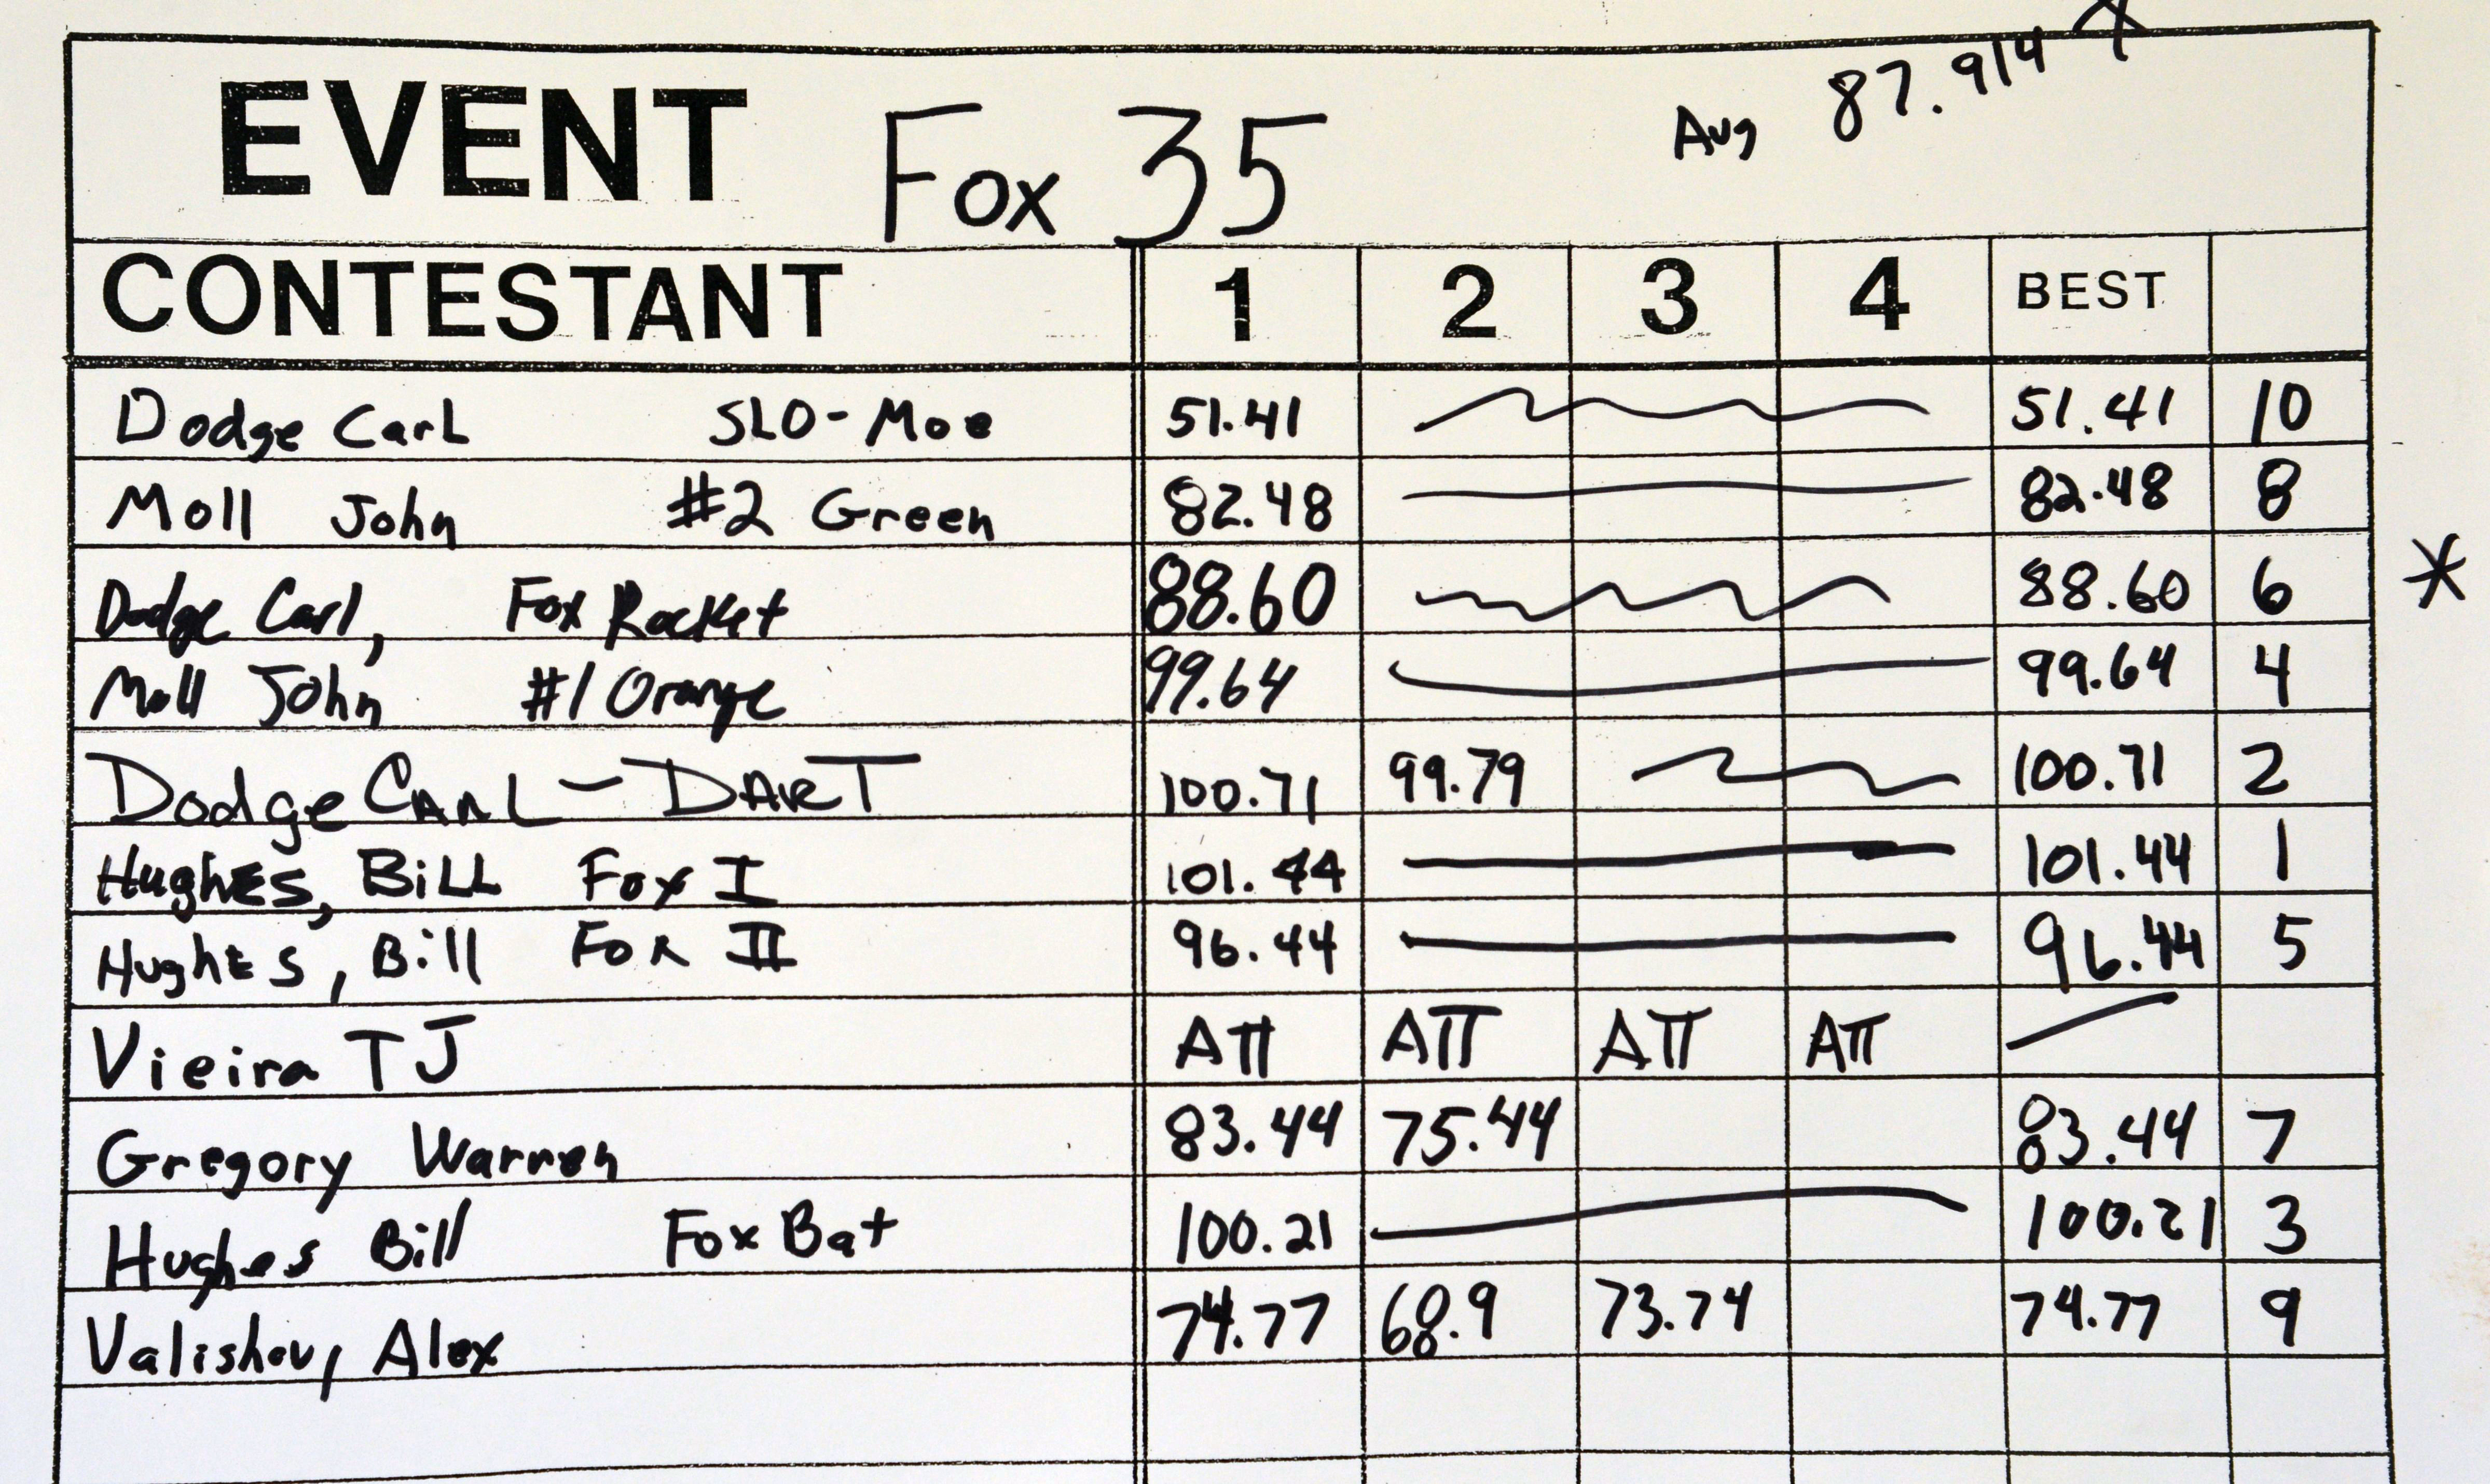 EVENT Fox 35 Avg 87.914 *
CONTESTANT 1 2 3 4 BEST
Dodge CarL SLO-Moe 51.41 51.41 10
Moll John #2 Green 82.48 82.48 8
Dodge Carl, Fox Rocket 88.60 88.60 6 *
Moll John #1 Orange 99.64 99.64 4
Dodge CARL - DART 100.71 99.79 100.71 2
HughES, BiLL Fox I 101.44 101.44 1
Hughes, Bill Fox II 96.44 96.44 5
Vieira TJ ATT ATT ATT ATT
Gregory Warren 83.44 75.44 83.44 7
Hughes Bill Fox Bat 100.21 100.21 3
Valishev, Alex 74.77 68.9 73.74 74.77 9